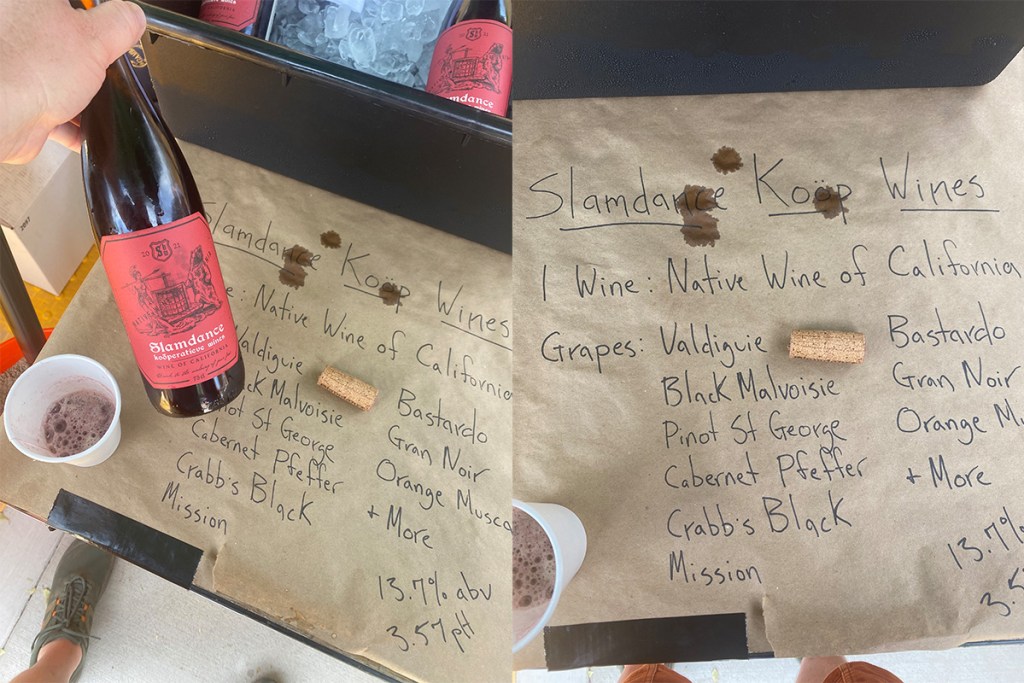 Slamdance
Slamdance
koöperatieve wines
WINE OF CALIFORNIA
Slamdance Koöp Wines
: Native Wine of California
Valdiguie
Black Malvoisie
Pinot St George
Cabernet Pfeffer
Crabb's Black
Mission
Bastardo
Gran Noir
Orange Musca
+ More
13.7% abv
3.57 pH
Slamdance Koöp Wines
1 Wine: Native Wine of California
Grapes: Valdiguie
Black Malvoisie
Pinot St George
Cabernet Pfeffer
Crabb's Black
Mission
Bastardo
Gran Noir
Orange Mu
+ More
13.7%
3.5